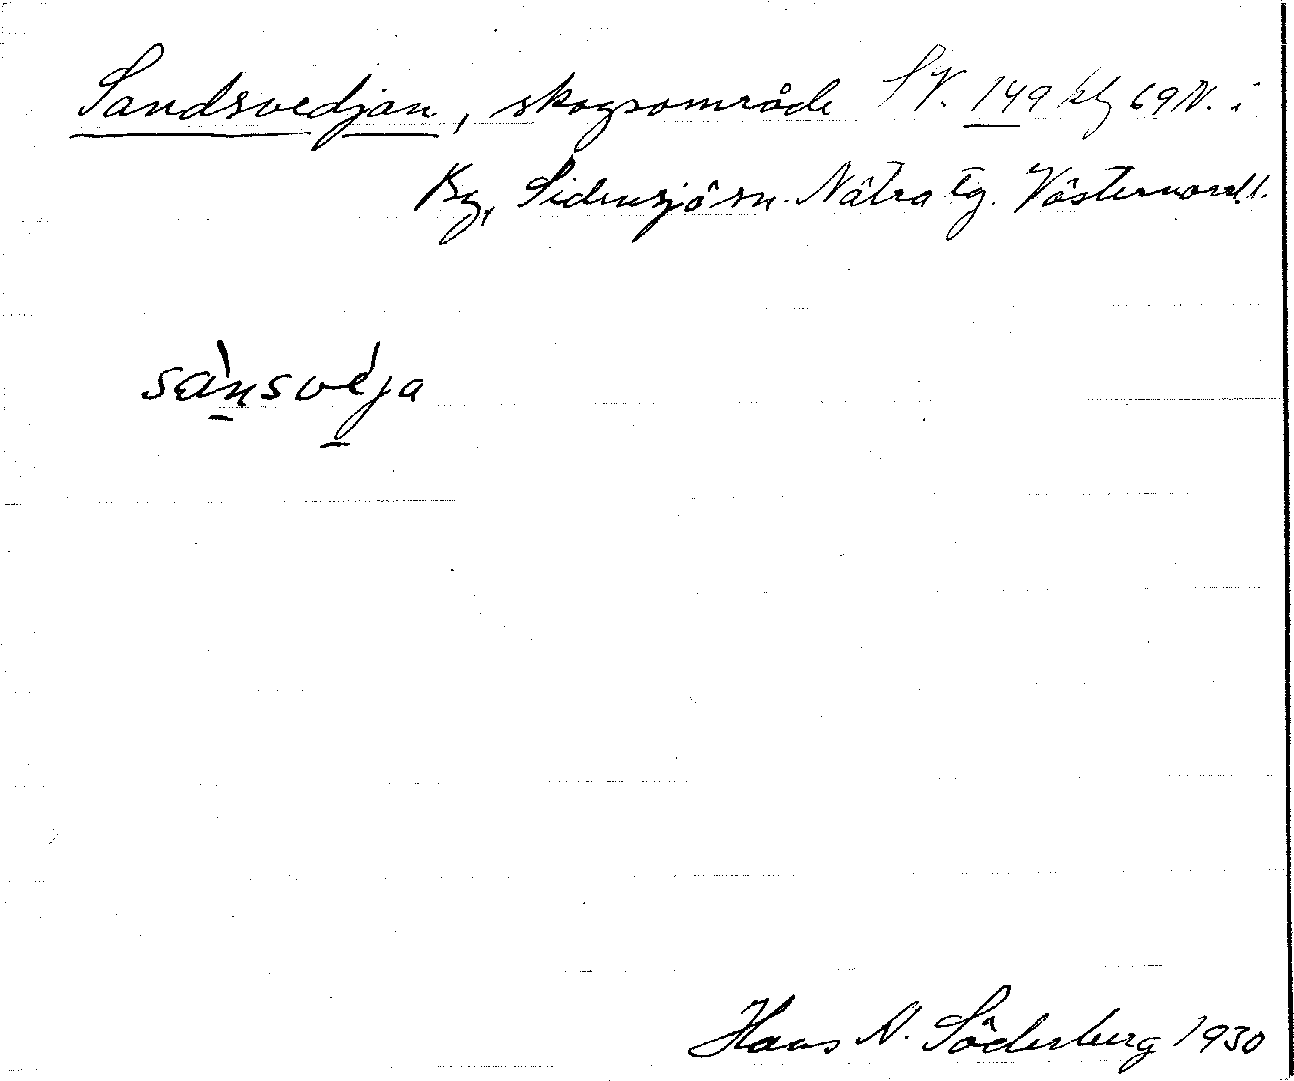 Sandsvedjan, skogsområde SV. 149 kbj 69 N. i
By, Sidensjö sn. Nätra tg. Västernorrl. l.
sànsvéja
Hans N. Söderberg 1930